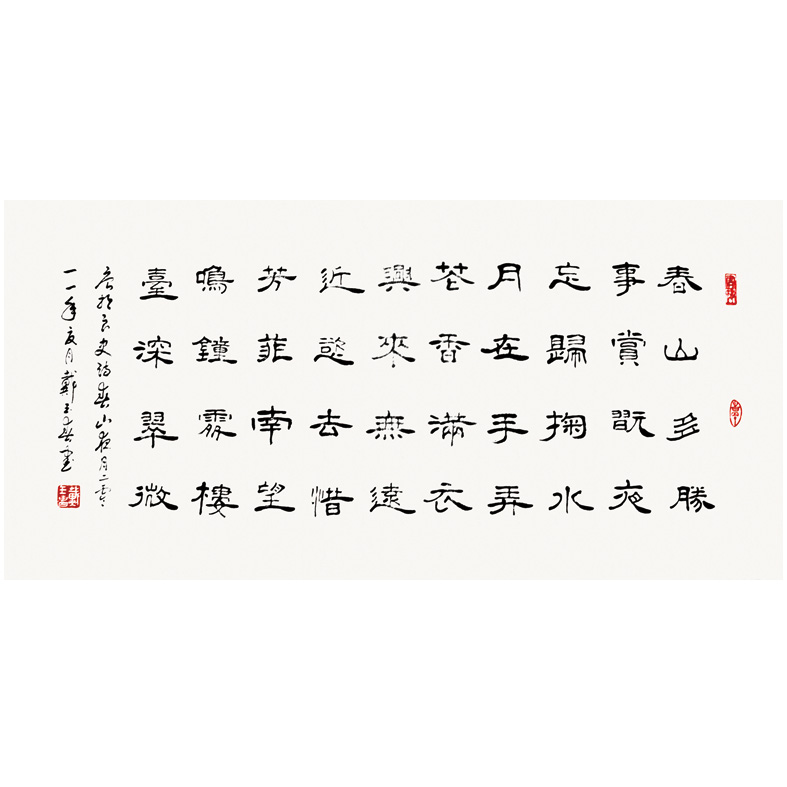 春山多勝
事賞翫夜
忘歸掬水
月在手弄
花香滿衣
興來無遠
近慾去惜
芳菲南望
鳴鐘處樓
臺深翠微
唐於良史詩春山夜月二零
一一年夏月戴玉